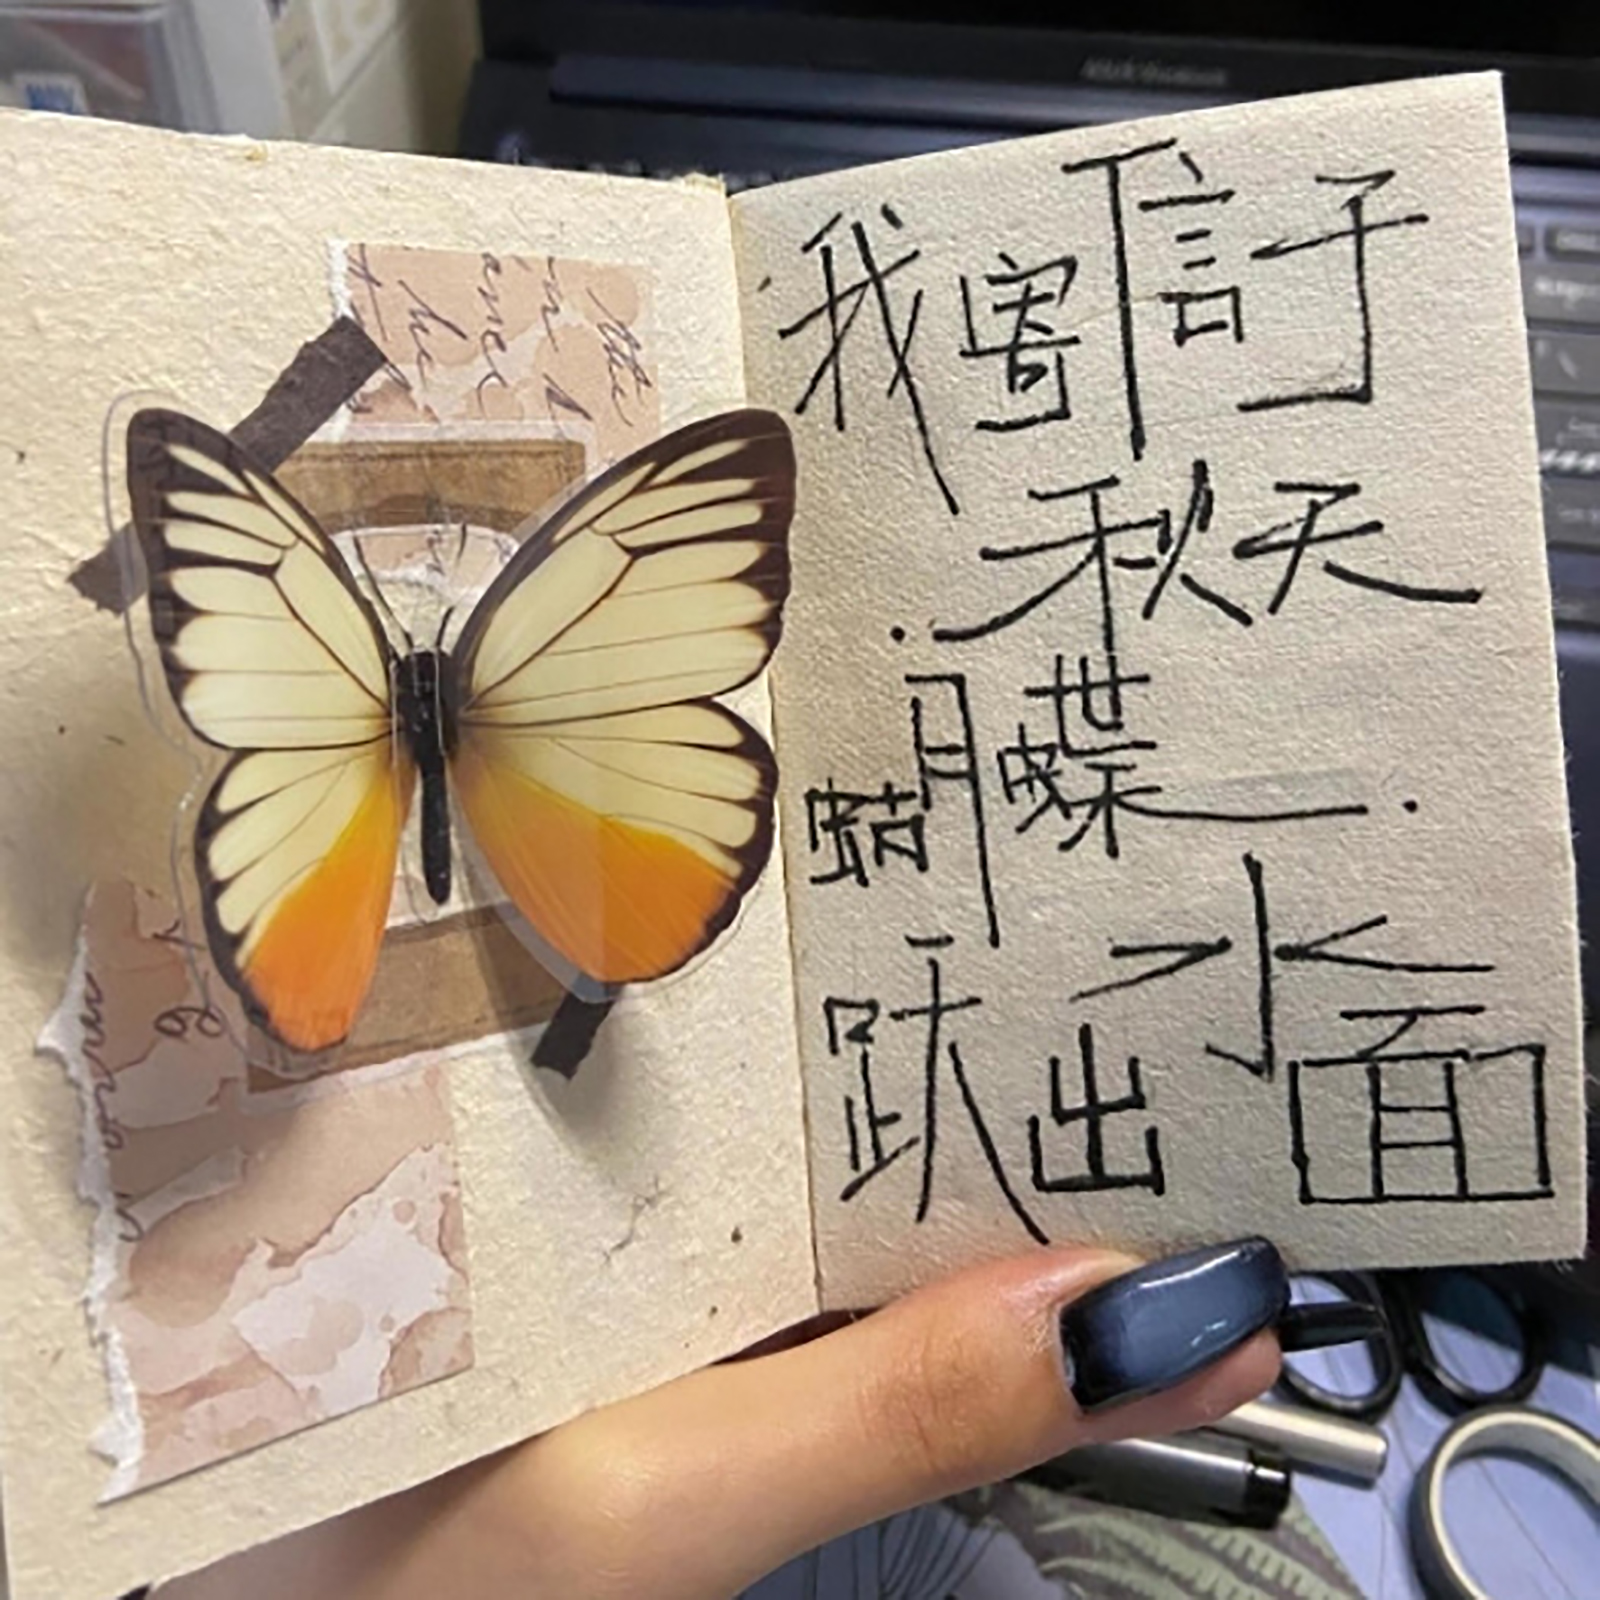 我寄信于
秋天
蝴蝶
跃出水面
the